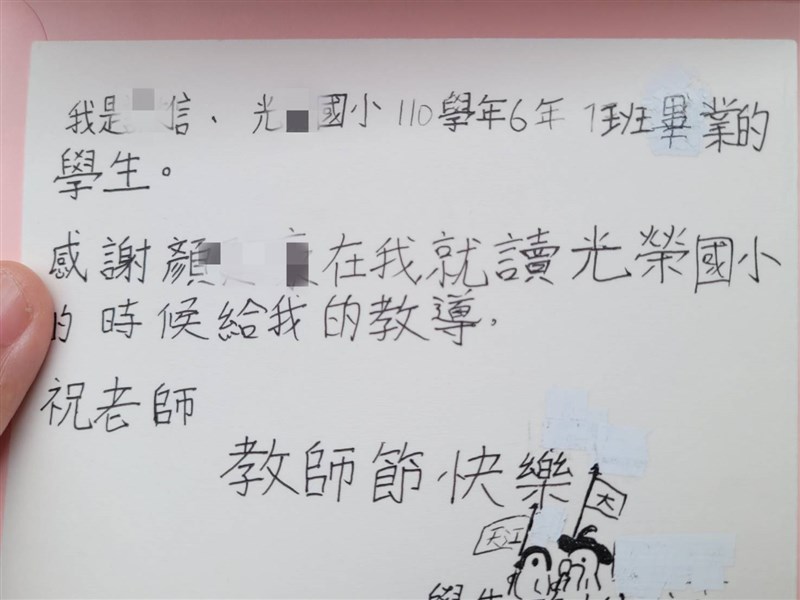 我是信、光國小110學年6年1班畢業的
學生。
感謝顏在我就讀光榮國小
的時候給我的教導,
祝老師
教師節快樂
大
天江
學生